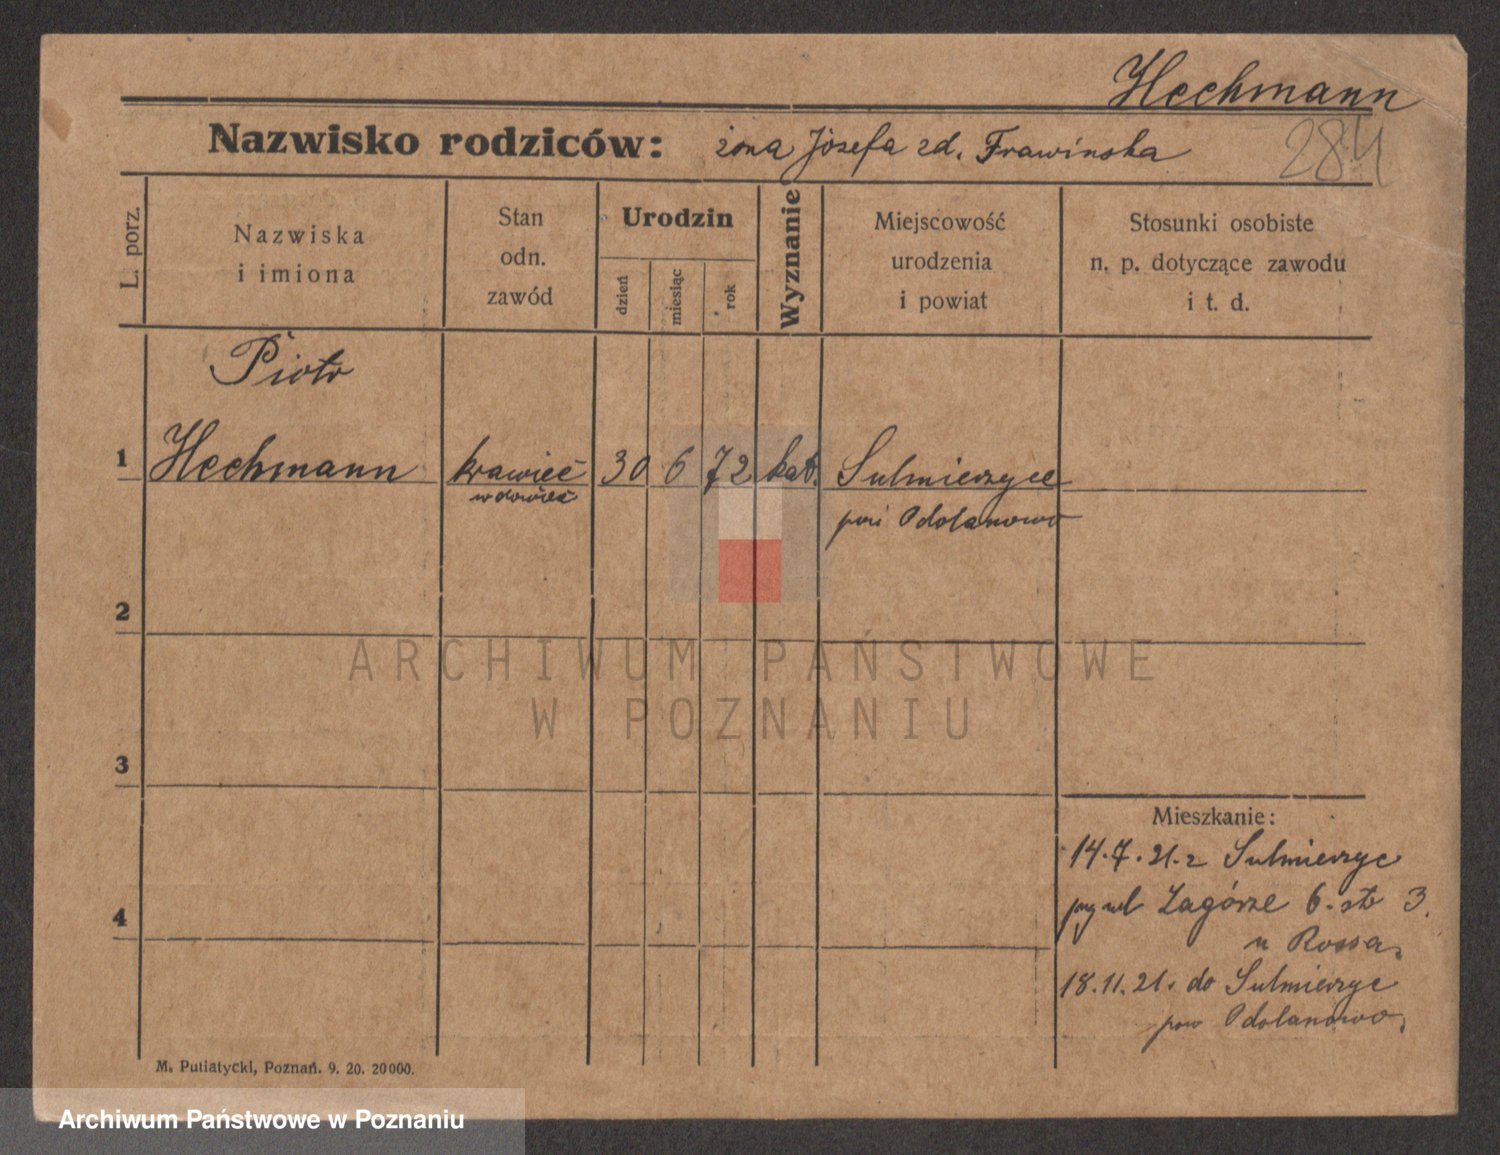 Hechmann
Nazwisko rodziców: żona Józefa zd. Frawińska
284
L. porz.
Nazwiska
i imiona
Stan
odn.
zawód
Urodzin
dzień
miesiąc
rok
Wyznanie
Miejscowość
urodzenia
i powiat
Stosunki osobiste
n. p. dotyczące zawodu
i t. d.
Piotr
1 Hechmann krawiec 30 6 72 kat. Sulmierzyce
wdowiec pow Odolanowo
2
ARCHIWUM PAŃSTWOWE
W POZNANIU
3
Mieszkanie:
14.7.21. z Sulmierzyc
Zagórze 6. 3.
u Rossa.
4
18.11.21. do Sulmierzyc
pow Odolanowo.
M. Putiatycki, Poznań. 9. 20. 20000.
Archiwum Państwowe w Poznaniu